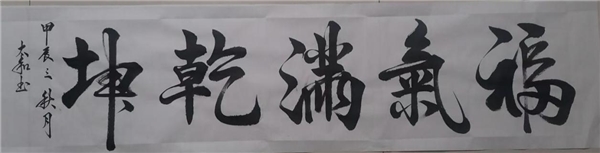 福氣滿乾坤
甲辰之秋月
太和書